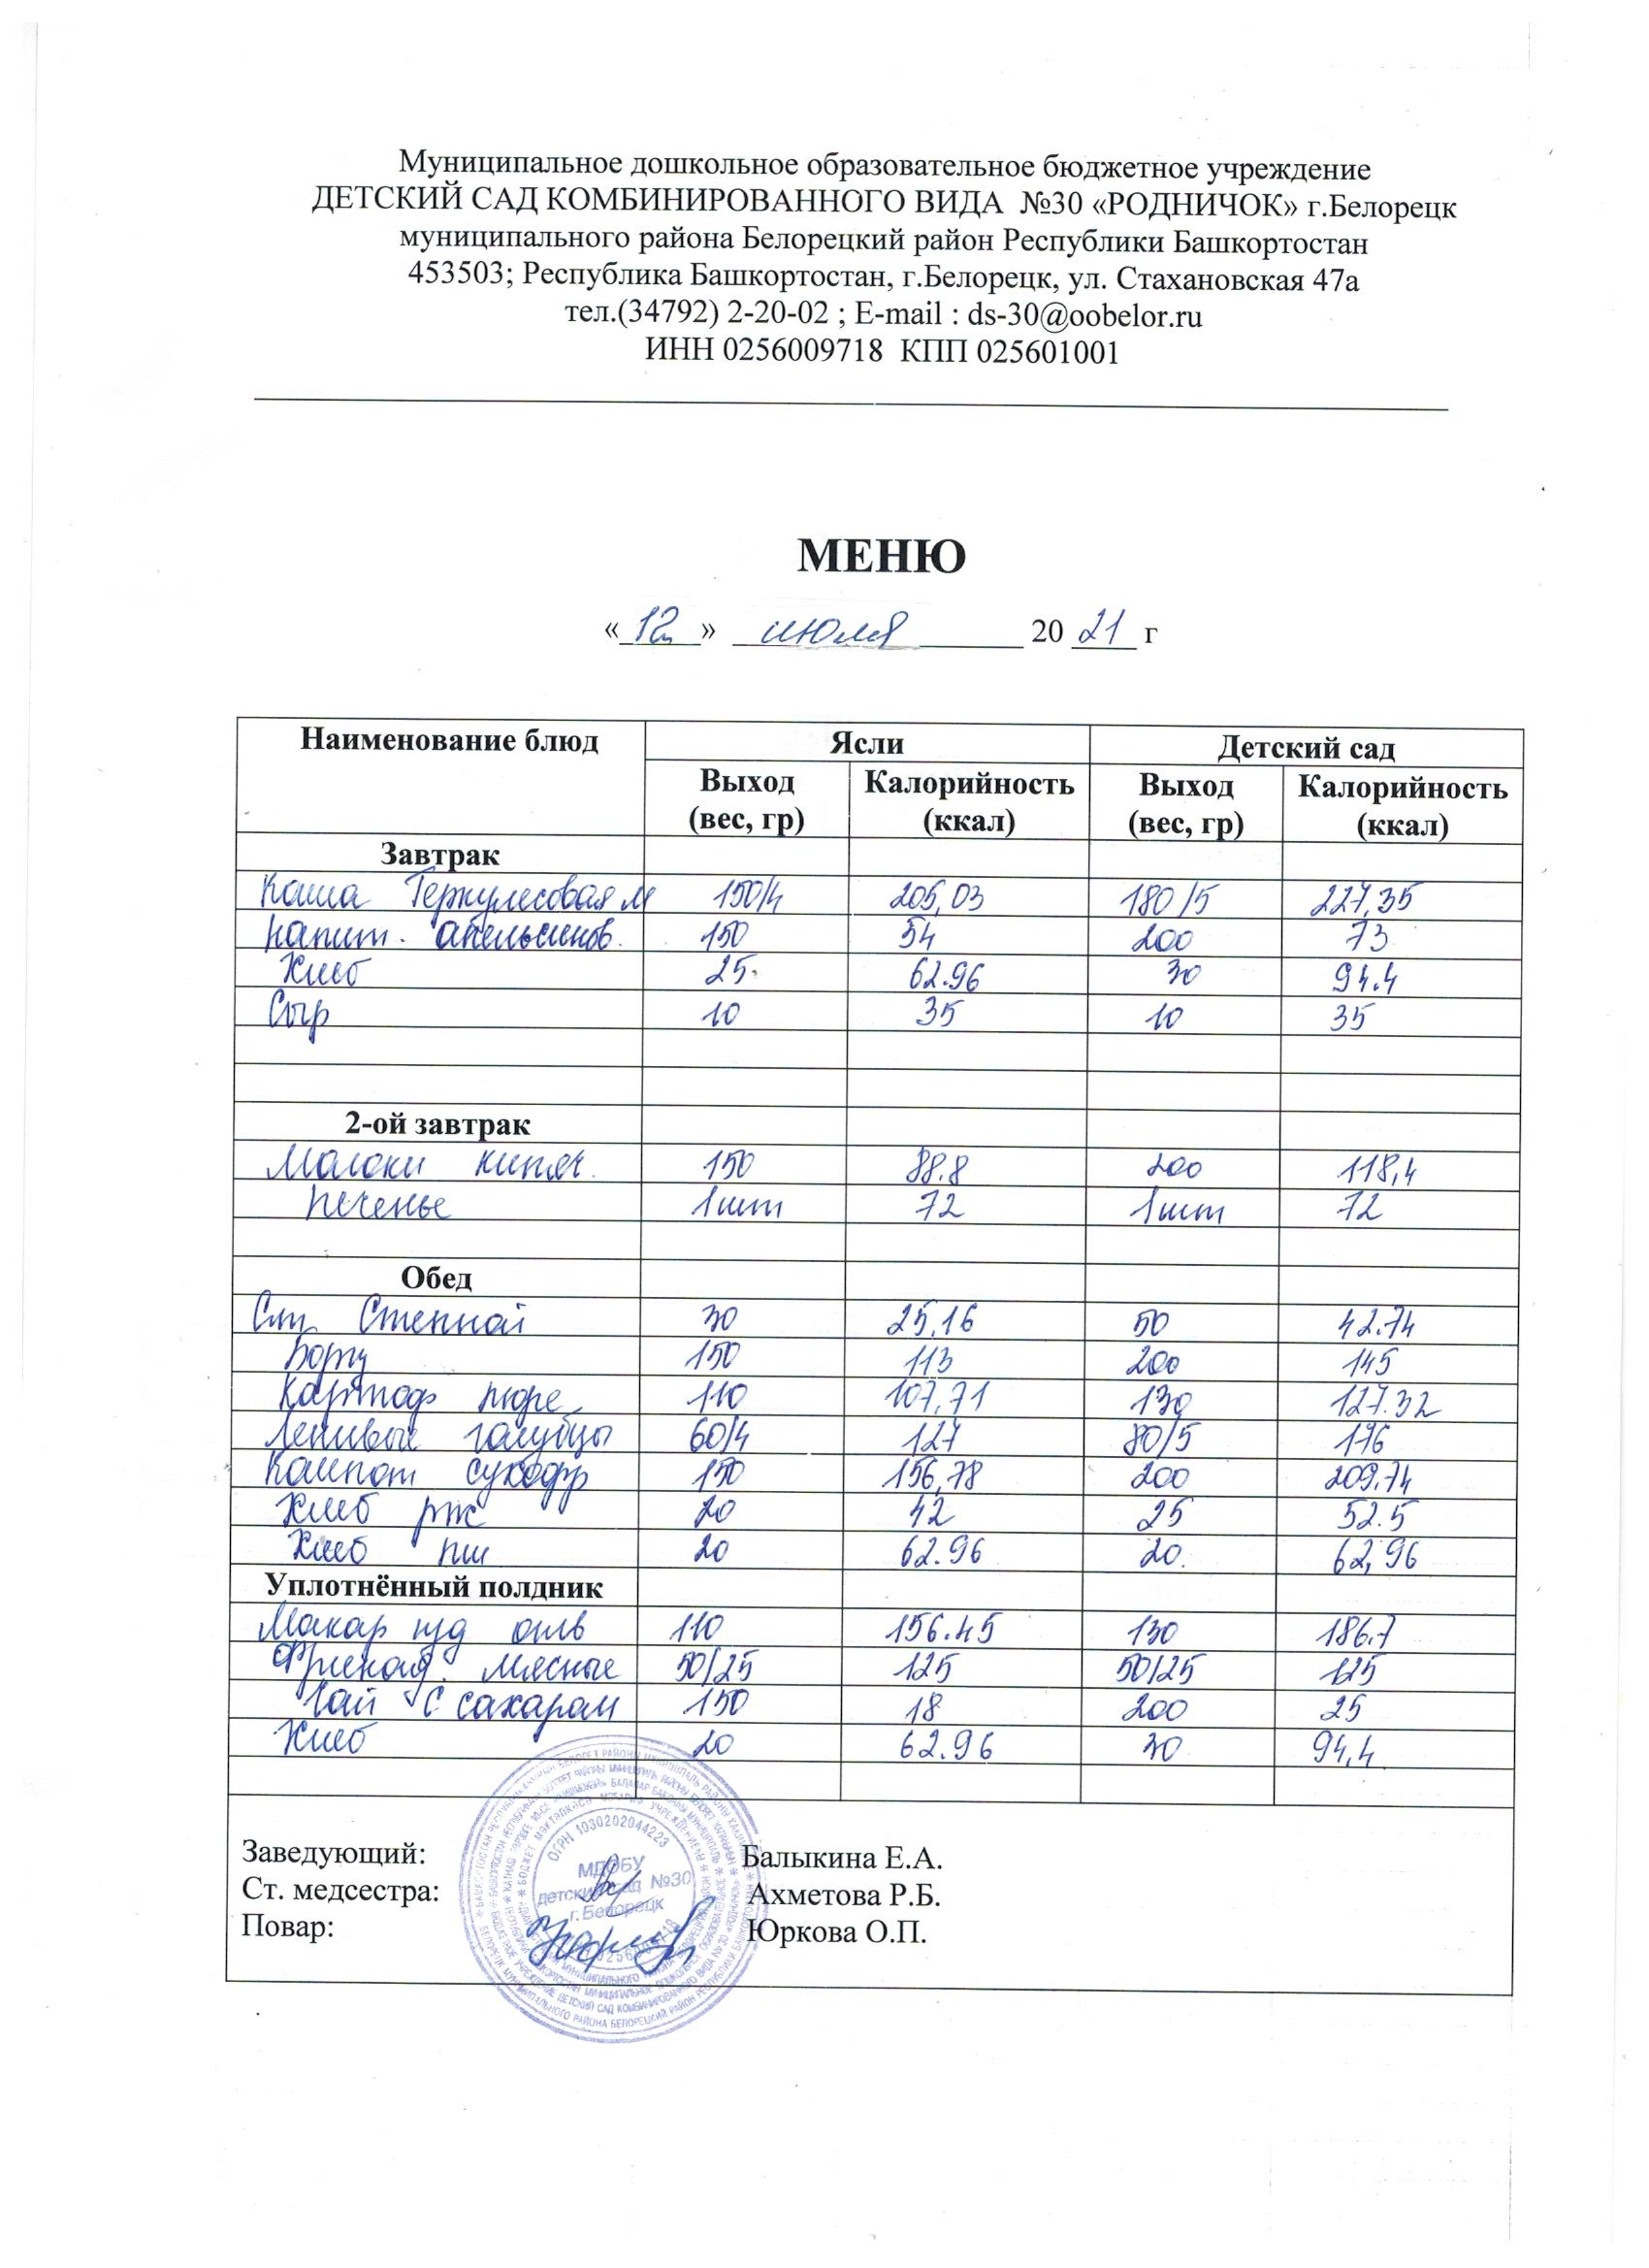 Муниципальное дошкольное образовательное бюджетное учреждение
ДЕТСКИЙ САД КОМБИНИРОВАННОГО ВИДА №30 «РОДНИЧОК» г.Белорецк
муниципального района Белорецкий район Республики Башкортостан
453503; Республика Башкортостан, г.Белорецк, ул. Стахановская 47а
тел.(34792) 2-20-02 ; E-mail : ds-30@oobelor.ru
ИНН 0256009718 КПП 025601001
МЕНЮ
«12» июля 20 21 г
Наименование блюд Ясли Детский сад
Выход (вес, гр) Калорийность (ккал) Выход (вес, гр) Калорийность (ккал)
Завтрак
Каша Геркулесовая м 150/4 205,03 180/5 227,35
напит. апельсинов. 150 54 200 73
Хлеб 25 62.96 30 94.4
Сыр 10 35 10 35
2-ой завтрак
Молоки кипяч. 150 88.8 200 118,4
печенье 1шт 72 1шт 72
Обед
Степной 30 25,16 50 42.74
Борщ 150 113 200 145
Картоф пюре 110 107,71 130 127.32
Ленивые голубцы 60/4 127 80/5 176
Компот сухофр 150 156,78 200 209.74
Хлеб рж 20 42 25 52.5
Хлеб пш 20 62.96 20. 62,96
Уплотнённый полдник
Макар изд отв 110 156.45 130 186.7
Фрикад. мясные 50/25 125 50/25 125
Чай с сахаром 150 18 200 25
Хлеб 20 62.96 30 94,4
Заведующий: Балыкина Е.А.
Ст. медсестра: Ахметова Р.Б.
Повар: Юркова О.П.
ОГРН 1030202044223
МДОБУ
детский сад №30
г. Белорецк